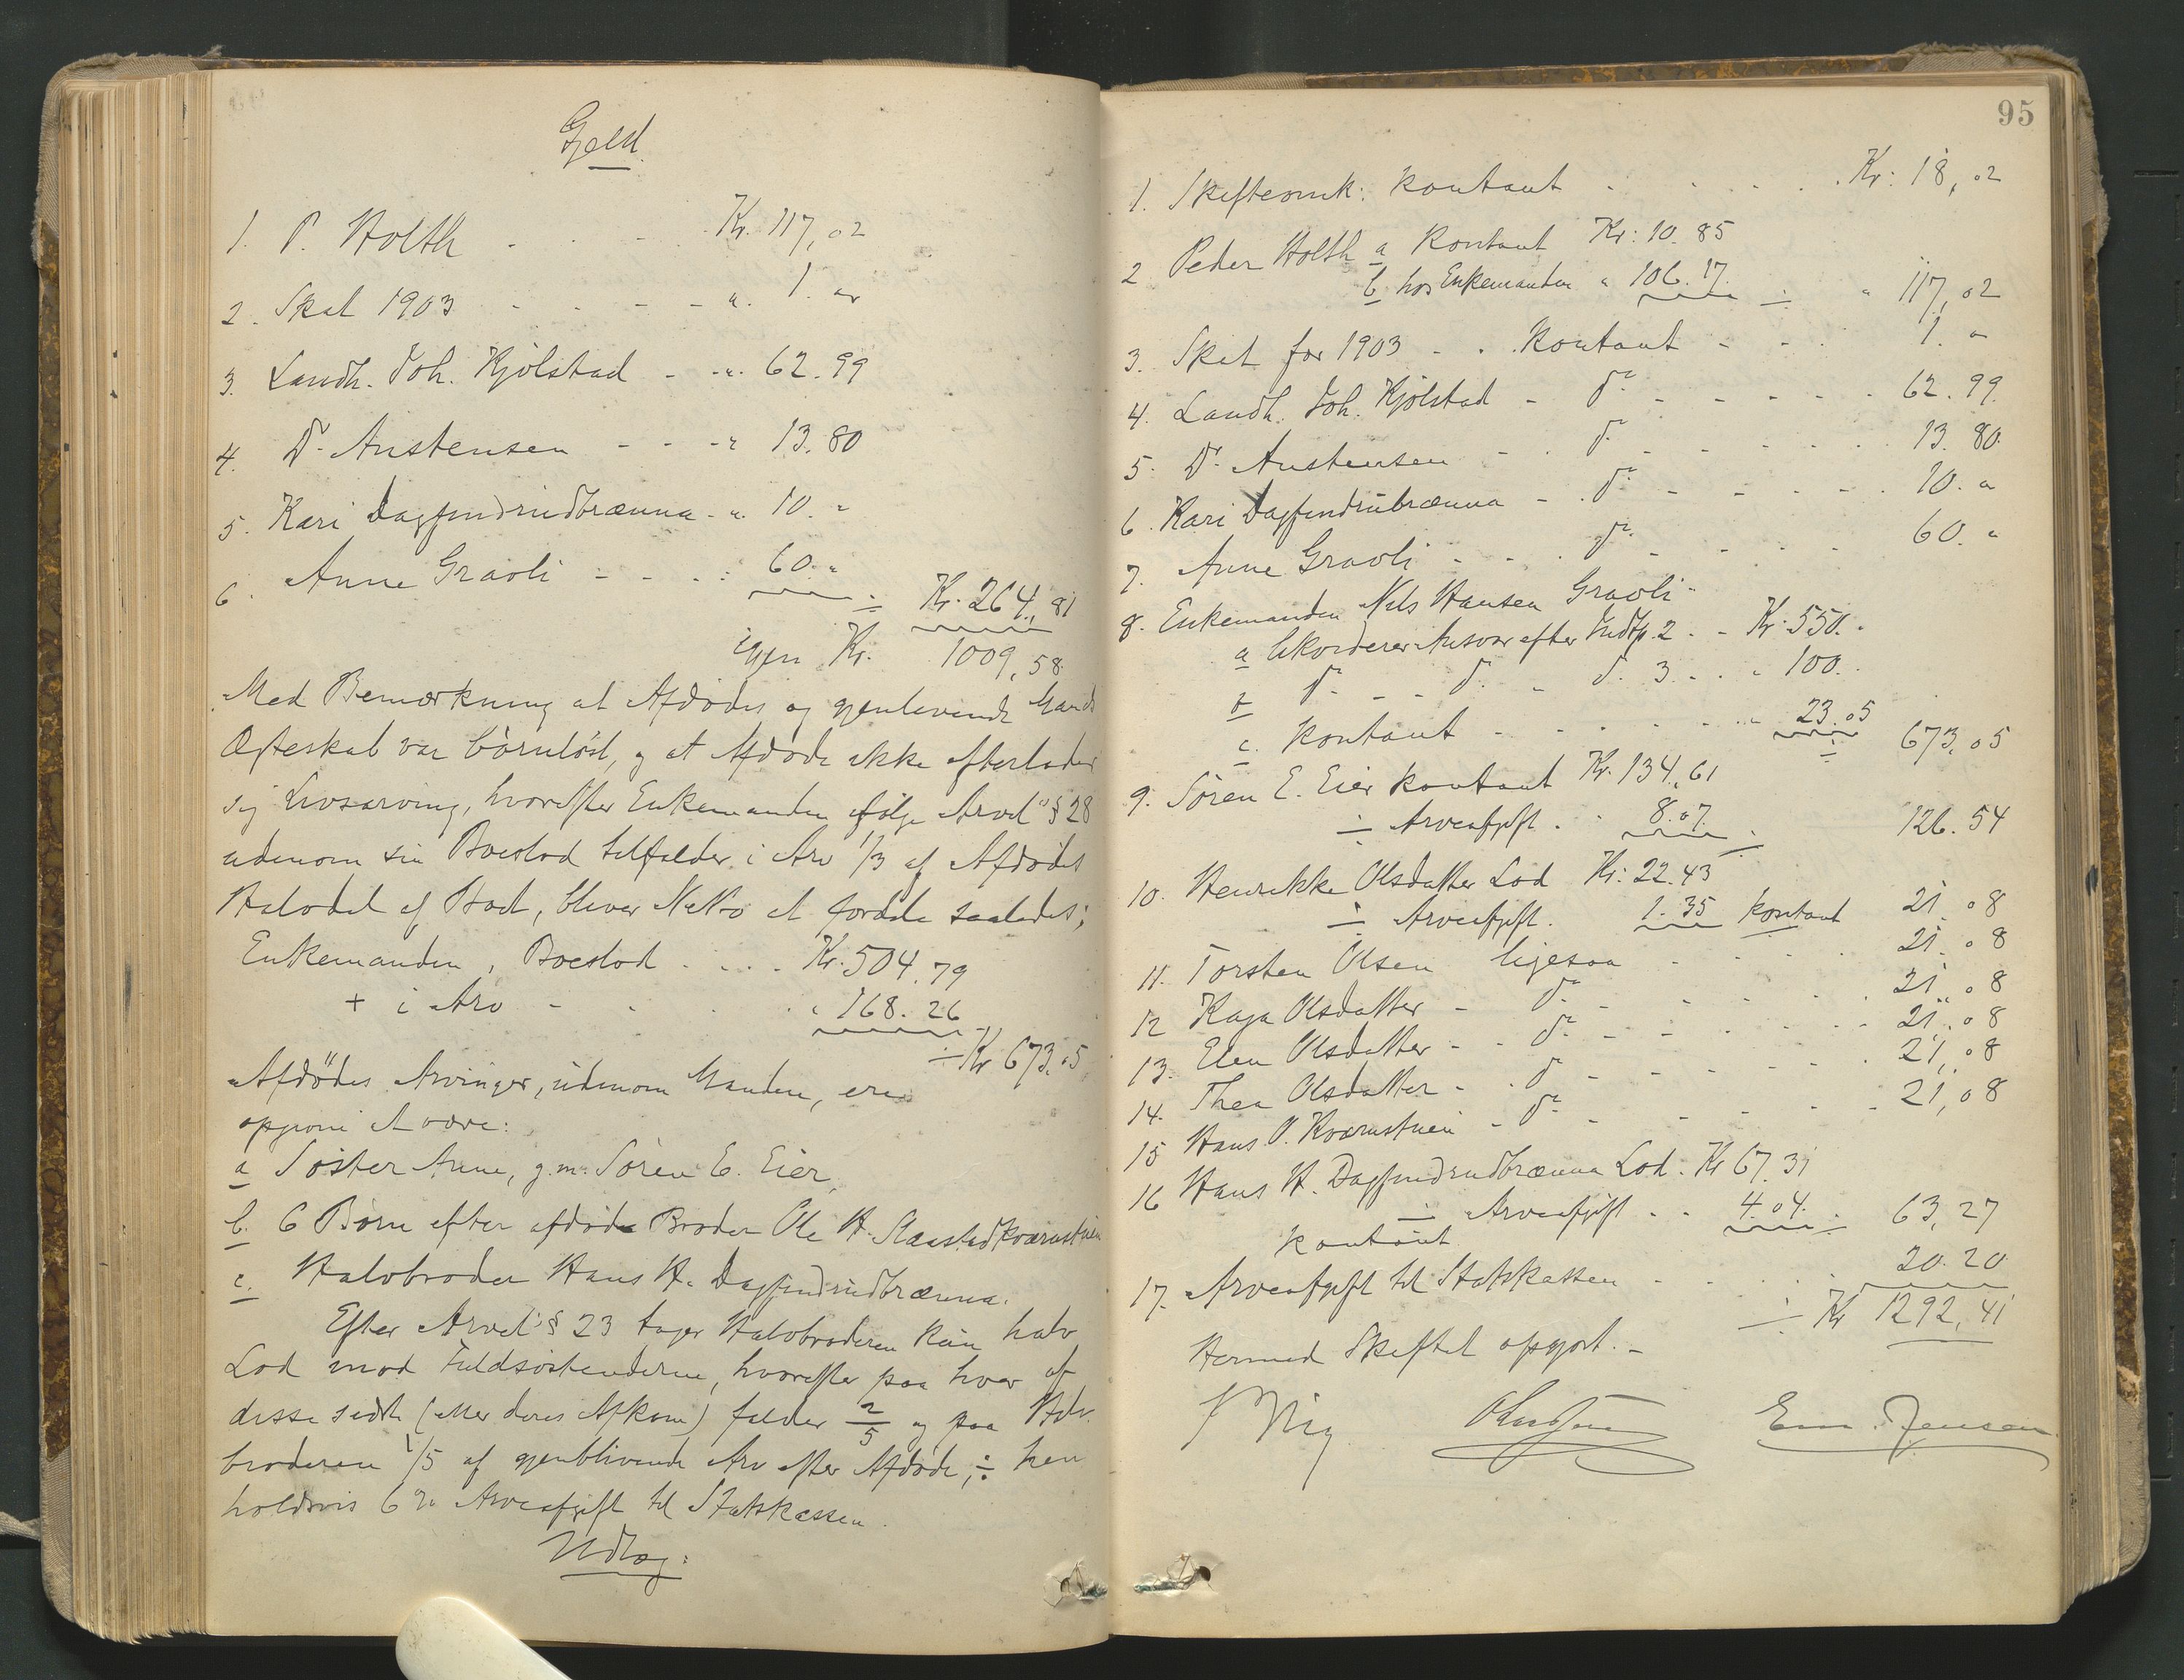 Gjeld.
1. P. Holth - - - Kr. 117,02
2. Skat 1903 - - - - " 1. "
3. Landh. Joh. Kjölstad - - " 62.99
4. Dr. Austensen - - - " 13.80
5. Kari Dagfindrudbrænna - " 10. "
6. Anne Graoli - - - : 60. "
÷ Kr. 264,81
igjen Kr. 1009,58
Med Bemærkning at Afdödes og gjenlevende Mands
Ægteskab var börnlöst, og at Afdöde ikke efterlader
sig Livsarving, hvorefter Enkemanden ifölge Arvel. § 28
udenom sin Boeslod tilfalder i Arv 1/3 af Afdödes
Halvdel af Boet, bliver Netto at fordele saaledes;
Enkemanden, Boeslod . . . . Kr. 504,79
+ i Arv - . . . " 168.26
÷ Kr 673.05
Afdödes Arvinger, udenom Manden, ere
opgivne at være:
a Söster Anne, g.m. Sören E. Eier,
b. 6 Börn efter afdöde Broder Ole H.
c. Halvbroder Hans H. Dagfindrudbrænna.
Efter Arvel. § 23 tager Halvbroderen kun halv
Lod mod Fuldsöskenderne, hvorefter paa hver af
disse sidste (eller deres Afkom) falder 2/5 og paa Halv
broderen 1/5 af gjenblivende Arv efter Afdöde, ÷ hen
holdsvis 6 % Arveafgift til Statskassen.
Udlæg:
95
1. Skifteomk: kontant . . . . . Kr: 18,02
2 Peder Holth a Kontant Kr: 10.85
b hos Enkemanden " 106.17. ÷ " 117,02
3. Skat for 1903 - . Kontant - - . 1. "
4. Landh. Joh. Kjölstad - do - - - - - 62.99
5. Dr. Austensen - . do - - - - . 13.80
6. Kari Dagfindrubrænna - . do - - - - - . 10. "
7. Anne Graoli - - . do - - - - 60. "
8. Enkemanden Nils Hansen Graoli -
a Ansvar efter Indtp. 2 . - Kr. 550. "
b do - - do - do 3 . . . " 100. .
c. kontant - - - - - . . " 23.05 ÷ 673,05
9. Sören E. Eier kontant Kr. 134,61
÷ Arveafgift . . 8.07. ÷ 126.54
10. Henrikke Olsdatter Lod Kr: 22.43
÷ Arveafgift. 1.35 kontant 21.08
11. Torsten Olsen ligesaa - . . . 21.08
12 Kaja Olsdatter - do - - - - . 21,08
13. Elen Olsdatter - - do - - - - - 21,08
14. Thea Olsdatter - . do - - - - . 21,08
15 Hans O. Kværnstuen - do - - - - - 21,08
16 Hans H. Dagfindrudbrænna Lod. Kr 67.31
÷ Arveafgift . . 4.04. ÷ 63,27
kontant
17. Arveafgift til Statskassen - . . . . 20.20
÷ Kr 1292,41
Hermed Skiftet opgjort. -
Em. Jensen